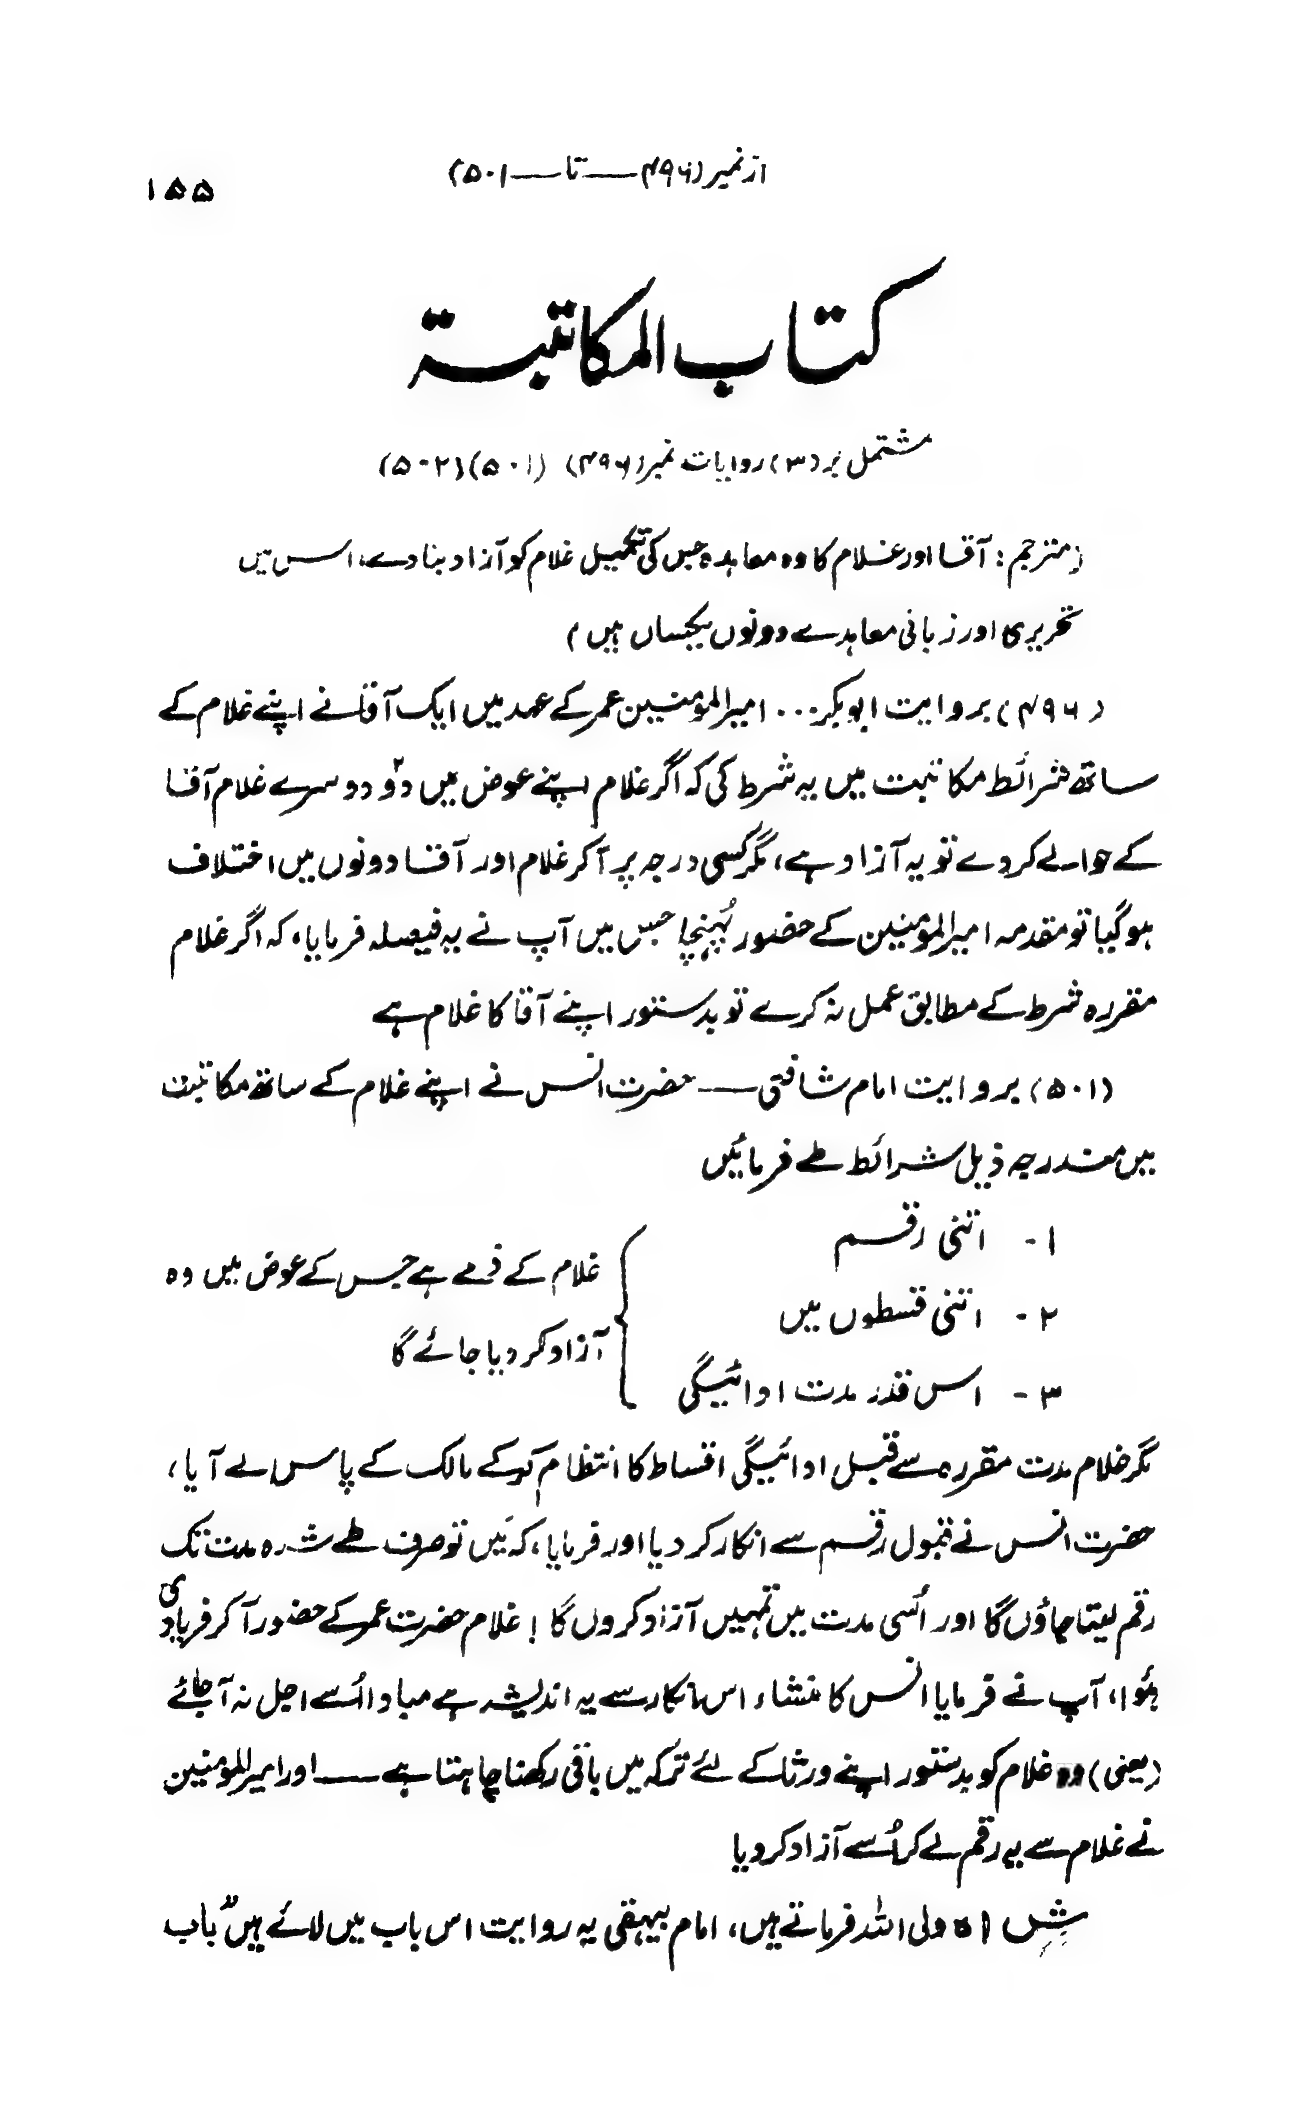 از نمبر (۴۹۶ — تا — ۵۰۱)
۱۵۵
کتاب المکاتبۃ
مشتمل بر (۳) روایات نمبر (۴۹۶) (۵۰۱) (۵۰۲)
(مترجم: آقا اور غلام کا وہ معاہدہ جس کی تکمیل غلام کو آزاد بنا دے، اس میں
تحریری اور زبانی معاہدے دونوں یکساں ہیں)
(۴۹۶) بروایت ابوبکر... امیرالمؤمنین عمر کے عہد میں ایک آقا نے اپنے غلام کے
ساتھ شرائط مکاتبت میں یہ شرط کی کہ اگر غلام اپنے عوض میں دو دوسرے غلام آقا
کے حوالے کر دے تو یہ آزاد ہے، مگر کسی درجہ پر آ کر غلام اور آقا دونوں میں اختلاف
ہو گیا تو مقدمہ امیرالمؤمنین کے حضور پہنچا جس میں آپ نے یہ فیصلہ فرمایا، کہ اگر غلام
مقررہ شرط کے مطابق عمل نہ کرے تو بدستور اپنے آقا کا غلام ہے
(۵۰۱) بروایت امام شافعی — حضرت انس نے اپنے غلام کے ساتھ مکاتبت
میں مندرجہ ذیل شرائط طے فرمائیں
۱- اتنی رقم
۲- اتنی قسطوں میں
۳- اس قدر مدت ادائیگی
غلام کے ذمے ہے جس کے عوض میں وہ
آزاد کر دیا جائے گا
مگر غلام مدت مقررہ سے قبل ادائیگی اقساط کا انتظام کر کے مالک کے پاس لے آیا،
حضرت انس نے قبول رقم سے انکار کر دیا اور فرمایا، کہ میں تو صرف طے شدہ مدت تک
رقم لیتا جاؤں گا اور اُسی مدت میں تمہیں آزاد کروں گا! غلام حضرت عمر کے حضور آ کر فریادی
ہُوا، آپ نے فرمایا انس کا منشاء اس انکار سے یہ اندیشہ ہے مبادا اُسے اجل نہ آ جائے
(یعنی) وہ غلام کو بدستور اپنے ورثا کے لئے ترکہ میں باقی رکھنا چاہتا ہے — اور امیرالمؤمنین
نے غلام سے یہ رقم لے کر اُسے آزاد کر دیا
شِ اہ ولی اللہ فرماتے ہیں، امام بیہقی یہ روایت اس باب میں لائے ہیں "باب